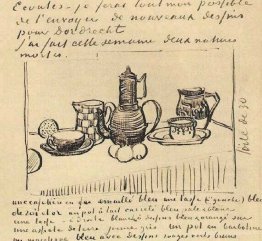 Ecoutes - je ferai tout mon possible
de t'envoyer de nouveaux dessins
pour Dordrecht
J'ai fait cette semaine deux natures
mortes.
toile de 30
une cafetière en fer émaillé bleu une tasse (à gauche) bleu
un pot à lait carrelé bleu
une tasse à droite à dessins bleu orangé sur
une assiette jaune gris un pot en barbotine
bleu avec dessins rouges verts bruns